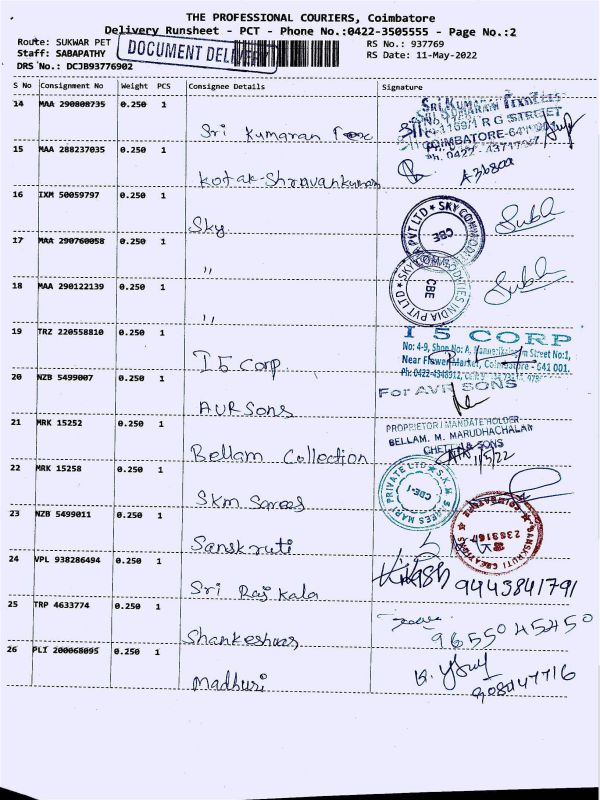 THE PROFESSIONAL COURIERS, Coimbatore
Delivery Runsheet - PCT - Phone No.:0422-3505555 - Page No.:2
Route: SUKWAR PET
RS No.: 937769
Staff: SABAPATHY
DOCUMENT DELIVERY
RS Date: 11-May-2022
DRS No.: DCJB93776902
S No Consignment No Weight PCS Consignee Details Signature
14 MAA 290808735 0.250 1
Sri Kumaran
SRI KUMARAN
R G STREET
COIMBATORE-641
Ph. 0422
15 MAA 288237035 0.250 1
Kotak-Shravankumar
16 IXM 50059797 0.250 1
Sky
SKY COMMODITIES INDIA PVT LTD
CBE
17 MAA 290760058 0.250 1
"
SKY COMMODITIES INDIA PVT LTD
CBE
18 MAA 290122139 0.250 1
"
19 TRZ 220558810 0.250 1
I5 Corp
I 5 CORP
No: 4-9, Shop No: A, Street No:1,
Near Flower Market, Coimbatore - 641 001.
Ph: 0422-4348912,
20 NZB 5499007 0.250 1
AVR Sons
For AVR SONS
21 MRK 15252 0.250 1
Bellam Collection
PROPRIETOR / MANDATE HOLDER
BELLAM. M. MARUDHACHALAM
CHETTIAR SONS
11/5/22
22 MRK 15258 0.250 1
SKM Sarees
S.K.M. SAREES MART PRIVATE LTD
CBE-1
23 NZB 5499011 0.250 1
Sanskruti
SANSKRUTI CREATIONS
COIMBATORE
24 VPL 938286494 0.250 1
Sri Raj Kala
9443841791
25 TRP 4633774 0.250 1
Shankeshwar
9655045450
26 PLI 200068095 0.250 1
Madhuri